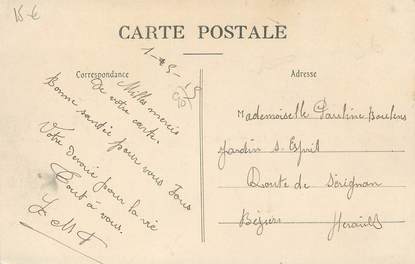 15 €
CARTE POSTALE
Correspondance
Adresse
Mille mercis
de votre carte.
Bonne santée pour vous Tous
Votre Devoué pour la vie
Tout à vous.
Mademoiselle Pauline
Jardin S. Esprit
Route de Sérignan
Béziers Herault